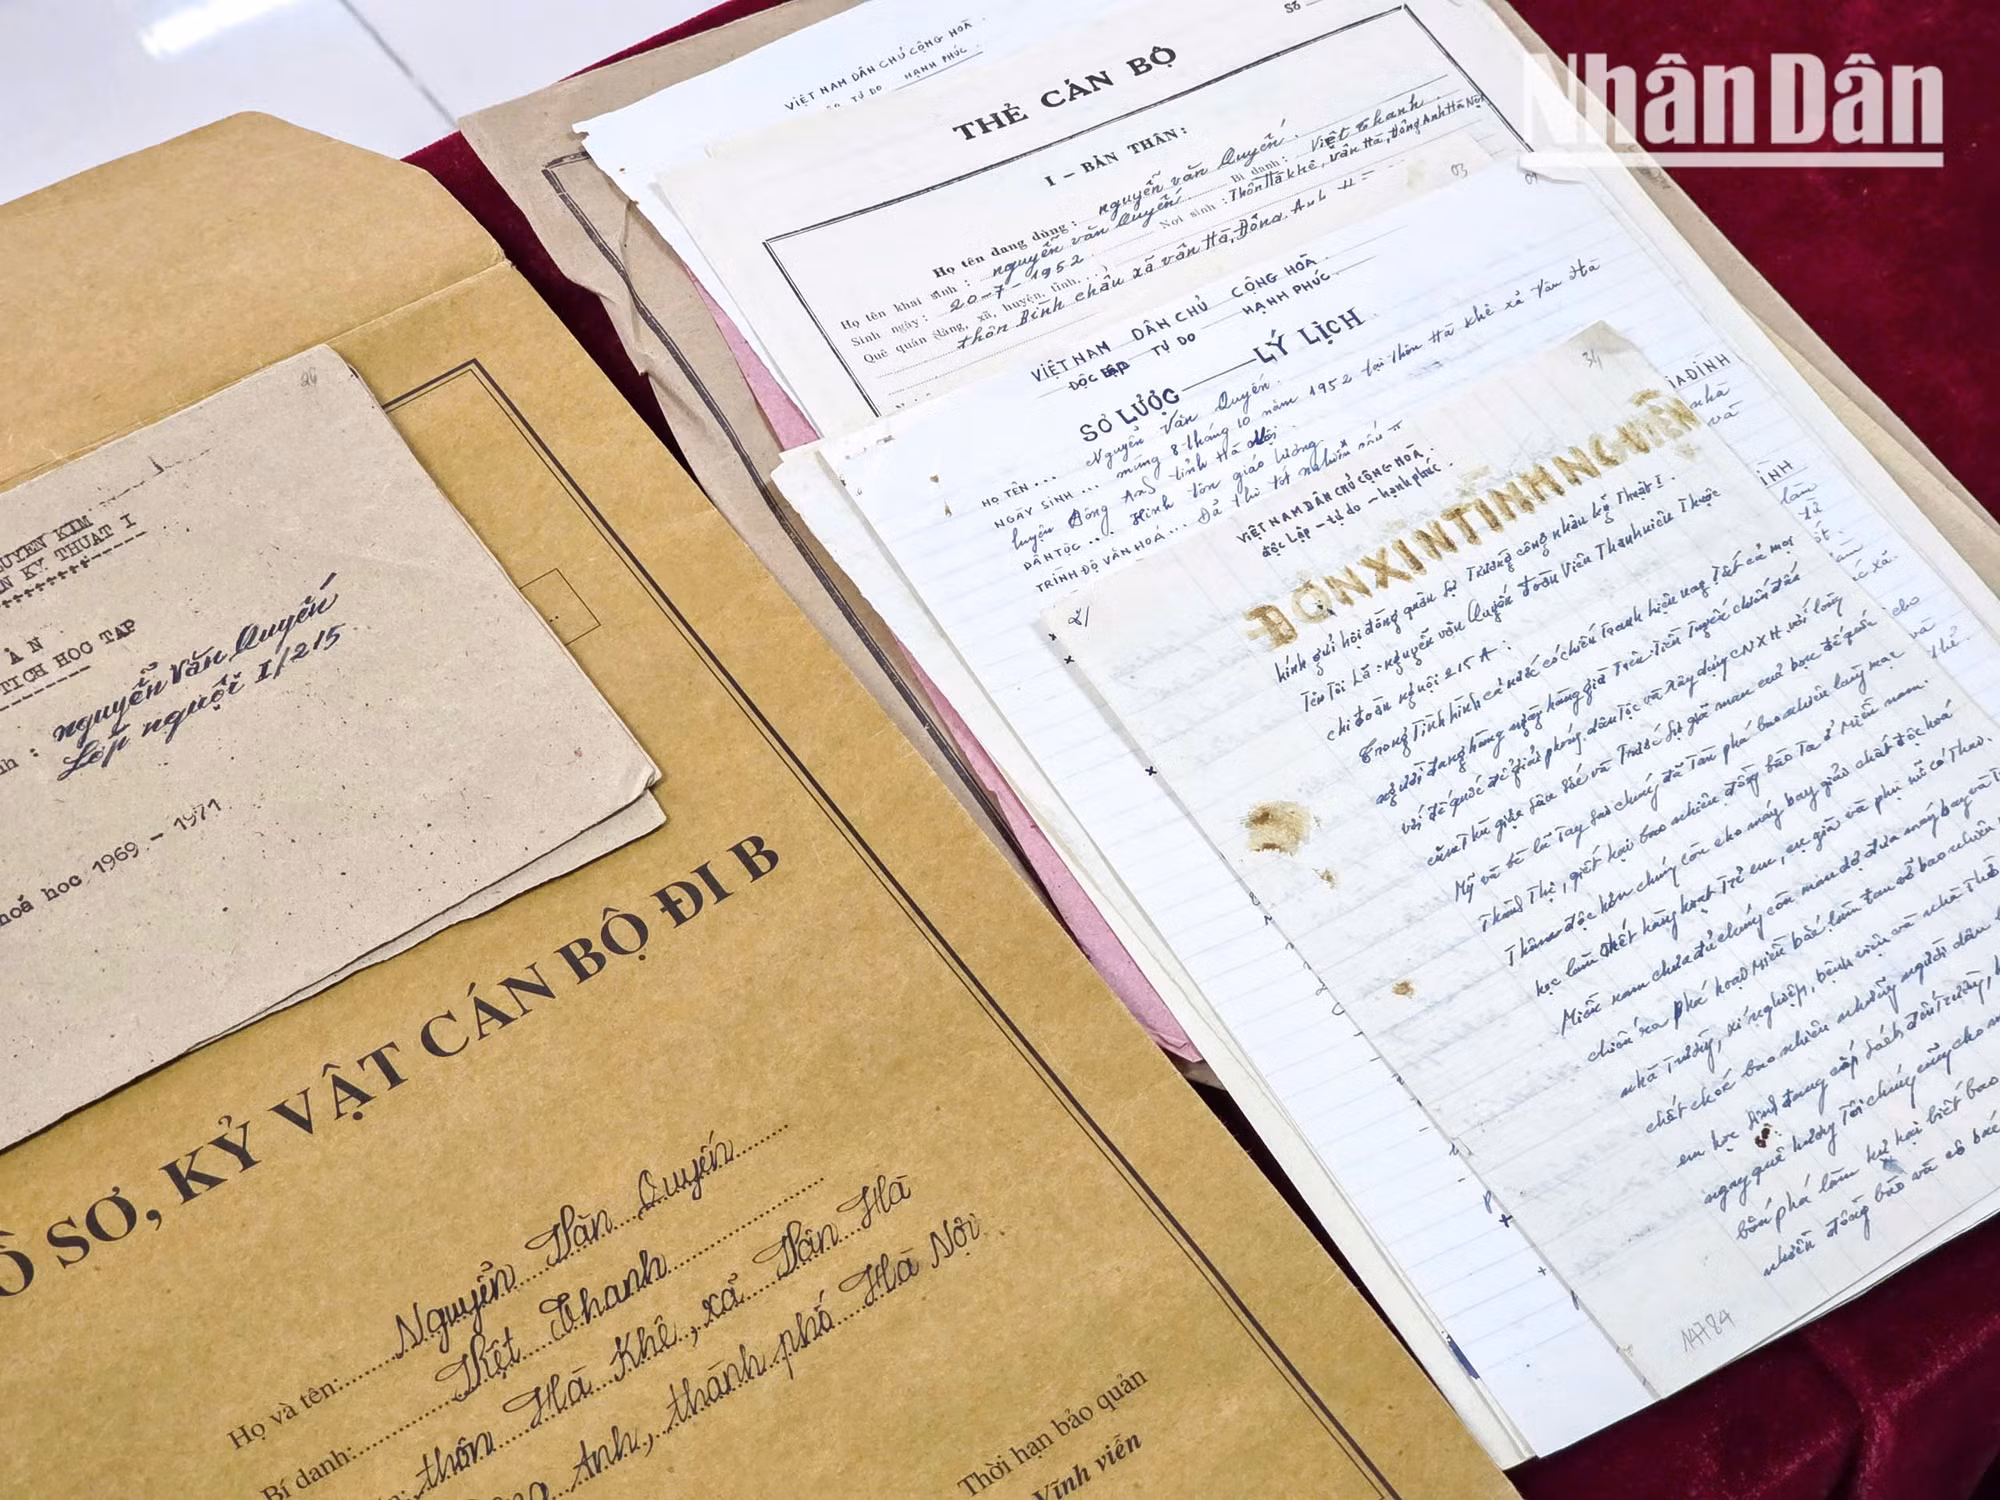 Nhân Dân
VIỆT NAM DÂN CHỦ CỘNG HOÀ
TỰ DO HẠNH PHÚC
Số
THẺ CÁN BỘ
I - BẢN THÂN:
Họ tên đang dùng: nguyễn văn Quyến. Bí danh: Việt Thanh
Họ tên khai sinh: nguyễn văn Quyến Nơi sinh: Thôn Hà khê, Vân Hà, Đông Anh Hà Nội
Sinh ngày: 20-7-1952
Quê quán (làng, xã, huyện, tỉnh,
thôn Bình chầu xã vân Hà, Đông Anh
03
VIỆT NAM DÂN CHỦ CỘNG HOÀ
ĐỘC LẬP TỰ DO HẠNH PHÚC.
SƠ LƯỢC LÝ LỊCH
HỌ TÊN ... Nguyễn Văn Quyến.
NGÀY SINH ... mùng 8 tháng 10 năm 1952 tại thôn Hà khê xã Vân Hà
huyện Đông Anh tỉnh Hà Nội.
DÂN TỘC ... Kinh tôn giáo lương
TRÌNH ĐỘ VĂN HOÁ ... Đã thi tốt nghiệp
GIA ĐÌNH
34
21
VIỆT NAM DÂN CHỦ CỘNG HOÀ.
độc Lập - tự do - hạnh phúc.
ĐƠN XIN TÌNH NGUYỆN
kính gửi hội đồng quân sự Trường công nhân kỹ Thuật I.
Tên Tôi Là: nguyễn văn Quyến đoàn Viên Thanh niên Thuộc
chi đoàn nguội 215 A:
Trong Tình hình cả nước có chiến tranh hiện nay Tất cả mọi
người đang hàng ngày hàng giờ Trên Tiền Tuyến chiến đấu
với đế quốc để giải phóng dân tộc và xây dựng CNXH với lòng
căm thù giặc sâu sắc và Trước sự dã man của bọn đế quốc
Mỹ và bè lũ Tay sai chúng đã Tàn phá bao nhiêu làng mạc
Thành Thị, giết hại bao nhiêu đồng bào Ta ở Miền nam.
Thâm độc hơn chúng còn cho máy bay giải chất độc hoá
học làm chết hàng loạt trẻ em, cụ già và phụ nữ có Thai.
Miền nam chưa đủ chúng còn man dợ đưa máy bay và
chiến ra phá hoại Miền bắc làm tan vỡ bao nhiêu
nhà Trường, xí nghiệp, bệnh viện và nhà Thờ
chết chóc bao nhiêu những người dân
em học sinh đang cắp sách đến Trường,
ngay quê hương Tôi chúng cũng cho
bắn phá làm huỷ hại biết bao
nhiêu đồng bào và cô bác
14784
26
UYEN KIM
N KY THUAT I
AN
TICH HOC TAP
nh : nguyễn Văn Quyến
Lớp nguội I/215
hoá hoc 1969 - 1971
Ồ SƠ, KỶ VẬT CÁN BỘ ĐI B
Họ và tên: Nguyễn Văn Quyến
Bí danh: Việt Thanh
thôn Hà Khê, xã Vân Hà
Anh, thành phố Hà Nội
Thời hạn bảo quản
Vĩnh viễn